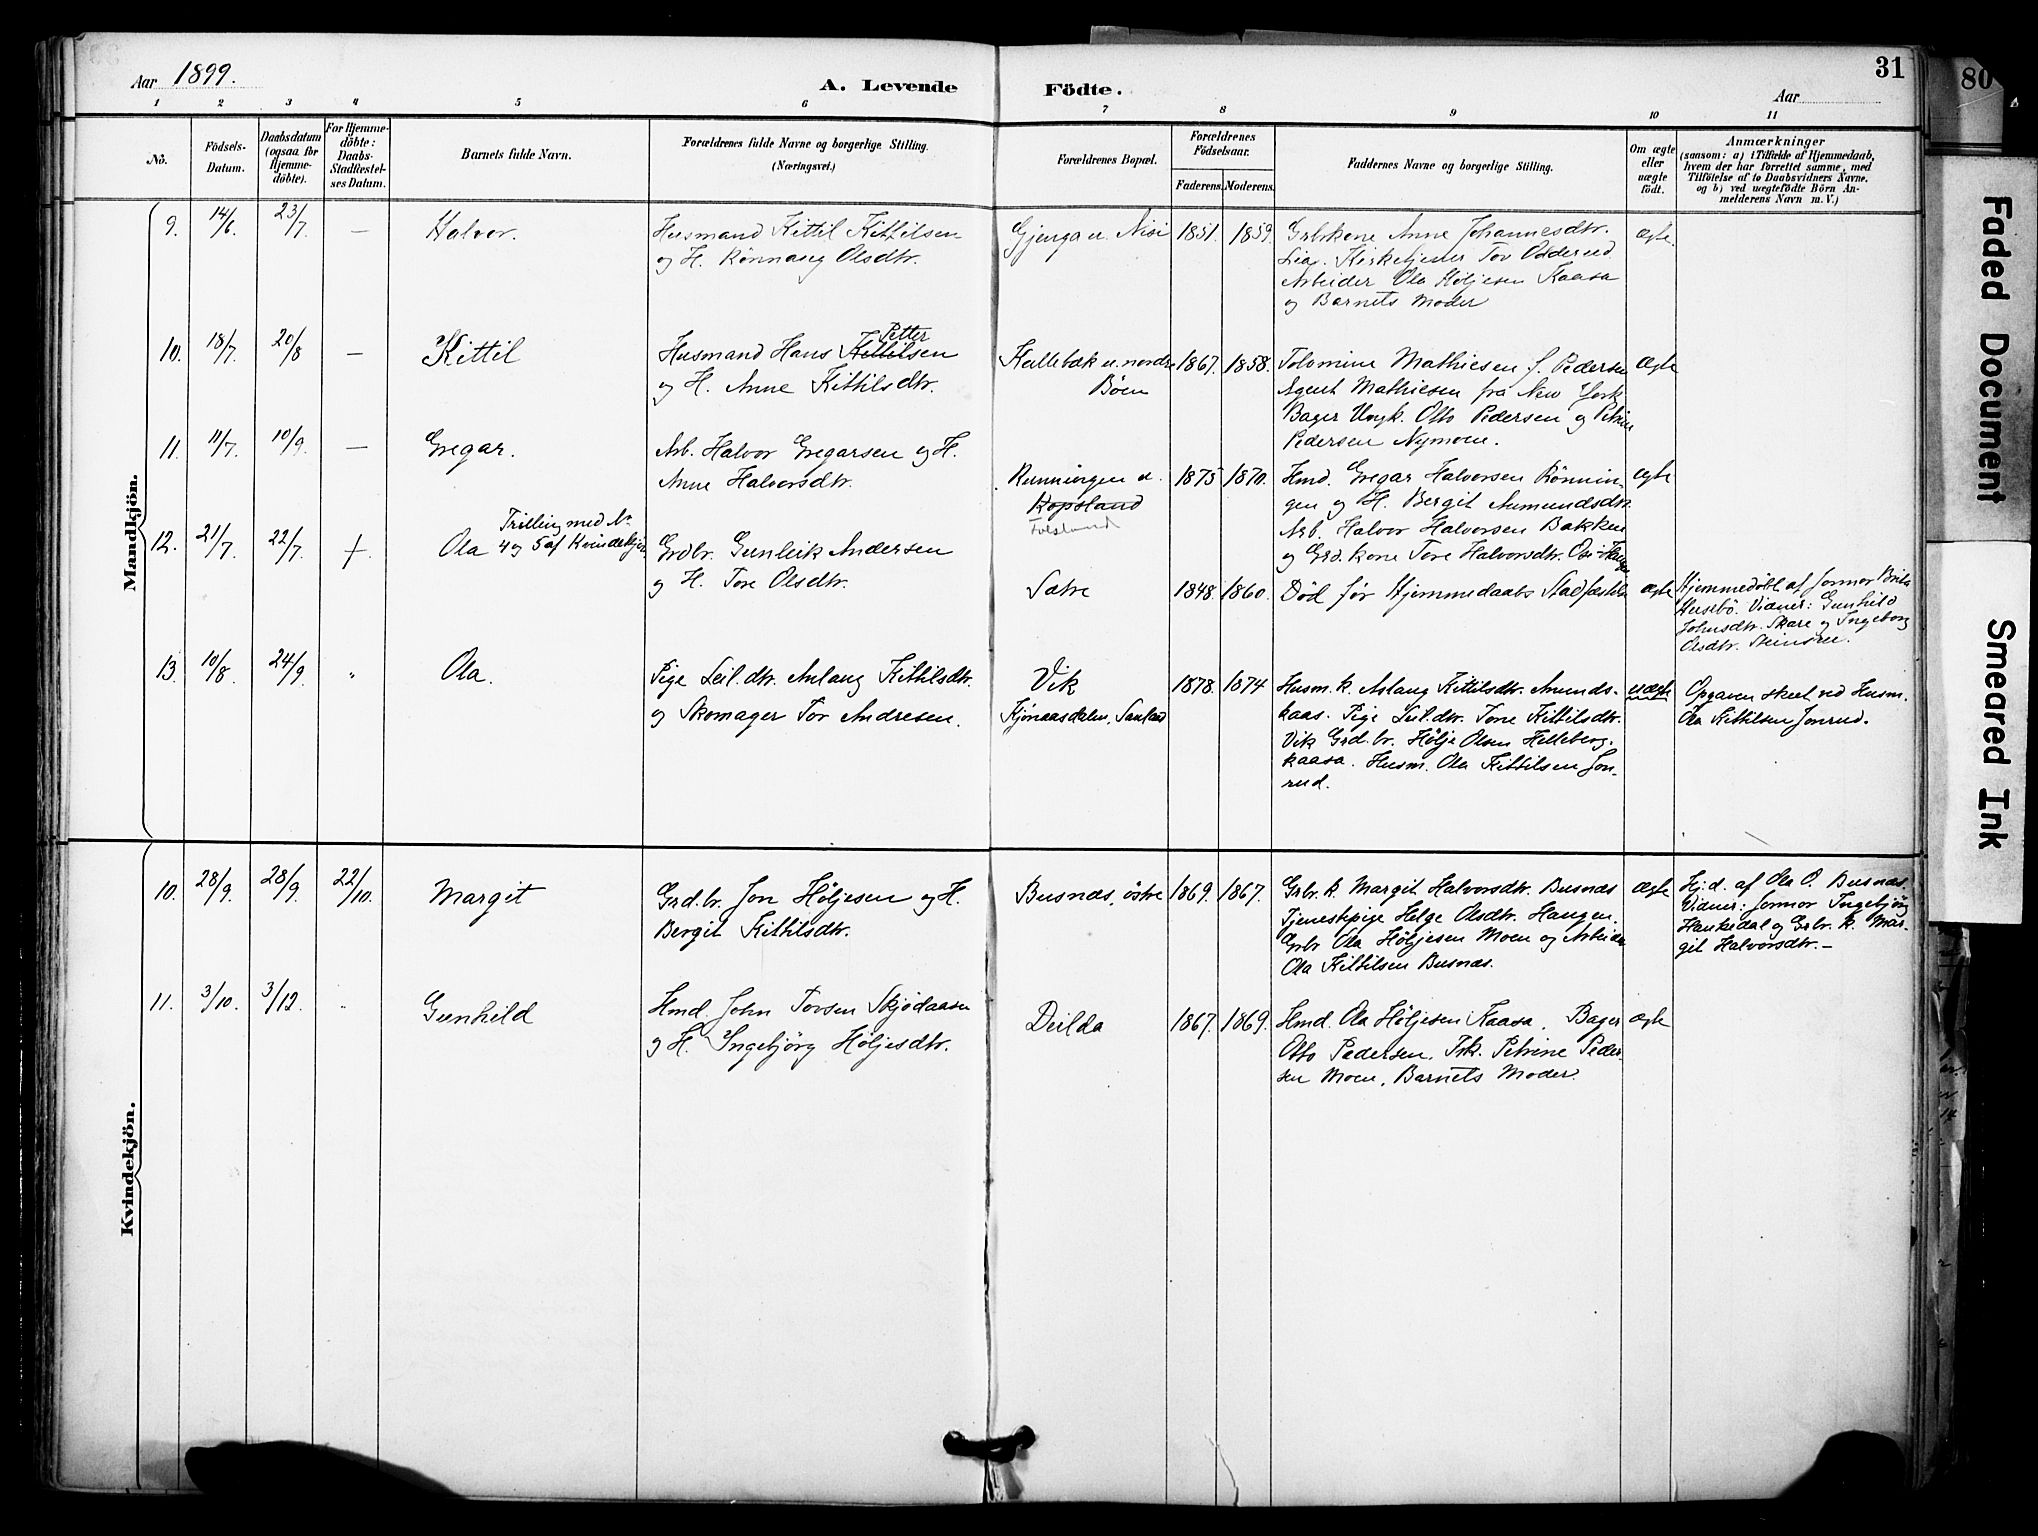 Aar 1899.
A. Levende Födte.
31
Aar
80
1 2 3 4 5 6 7 8 9 10 11
Nô.
Födsels-Datum.
Daabsdatum (ogsaa for Hjemme-döbte).
For Hjemme-döbte: Daabs-Stadfæstel-ses Datum.
Barnets fulde Navn.
Forældrenes fulde Navne og borgerlige Stilling.
(Næringsvei.)
Forældrenes Bopæl.
Forældrenes Födselsaar.
Faderens. Moderens.
Faddernes Navne og borgerlige Stilling.
Om ægte eller uægte födt.
Anmærkninger
(saasom: a) i Tilfælde af Hjemmedaab,
hvem der har forrettet samme, med
Tilföielse af to Daabsvidners Navne.
og b) ved uægtefödte Börn An-
melderens Navn m. V.)
Mandkjön.
9. 14/6. 23/7. — Halvor.
Husmand Kittil Kittilsen
og H. Rönnaug Olsdtr.
Gjenga u. Nisi 1851. 1859.
Grbrkone Anne Johannesdtr.
Lia. Kirketjener Tov Odderud
Arbeider Ola Höljesen Kaasa
og Barnets Moder
ægte.
10. 18/7. 20/8 — Kittil
Petter
Husmand Hans Kittilsen
og H. Anne Kittilsdtr.
Kallebæk u. nordre
Böen
1867. 1858.
Tolomine Mathiesen f. Pedersen
Agent Mathiesen fra New York
Bager Ungk. Otto Pedersen og Petrine
Pedersen Nymoen.
Ægte
11. 11/7. 10/9. — Gregar.
Arb. Halvor Gregarsen og H.
Anne Halvorsdtr.
Runningen u.
Kopsland
1875 1870.
Hmd. Gregar Halvorsen Rönnin-
gen og H. Bergit Aumundsdtr.
Arb. Halvor Halvorsen Bakken
og Grd.kone Tore Halvorsdtr.
ægte
12. 21/7. 22/7. + Ola
Trilling med No
4 og 5 af Kvindekjön
Grdbr. Gunleik Andersen
og H. Tore Olsdtr.
Sætre 1848. 1860.
Död för Hjemmedaabs Stadfæstelse
ægte
Hjemmedöbt af Jormor Brita
Husebö. Vidner: Gunhild
Johnsdtr. Skare og Ingeborg
Olsdtr. Steinsrue.
13. 10/8. 24/9. " Ola.
Pige Leil.dtr. Aslaug Kittilsdtr.
og Skomager Tov Andresen.
Vik
Kjönaasdalen, Sauland
1878. 1874
Husm.k. Aslaug Kittilsdtr. Amunds-
kaas. Pige Leil.dtr. Tone Kittilsdtr.
Vik Grd.br. Hölje Olsen Helleberg-
kaasa. Husm. Ola Kittilsen Jon-
rud.
uægte
Opgaven skeet ved Husm.
Ola Kittilsen Jonrud.
Kvindekjön.
10. 28/9. 28/9. 22/10. Margit
Grd.br. Jon Höljesen og H.
Bergit Kittilsdtr.
Busnæs, östre 1869. 1867.
Grbr.k. Margit Halvorsdtr. Busnæs
Tjenestepige Helge Olsdtr. Haugen.
Grbr Ola Höljesen Moen og Arbeider
Ola Kittilsen Busnæs.
ægte
Hj.d. af Ola O. Busnæs.
Vidner: Jormor Ingebjörg
Haukedal og Grbr. k. Mar-
git Halvorsdtr.—
11. 3/10. 3/12. " Gunhild
Hmd. John Torsen Skjödaasen
og H. Ingebjörg Höljesdtr.
Deilda 1867. 1869.
Hmd. Ola Höljesen Kaasa. Bager
Otto Pedersen. Frk. Petrine Peder-
sen Moen. Barnets Moder.
ægte
Faded Document
Smeared Ink